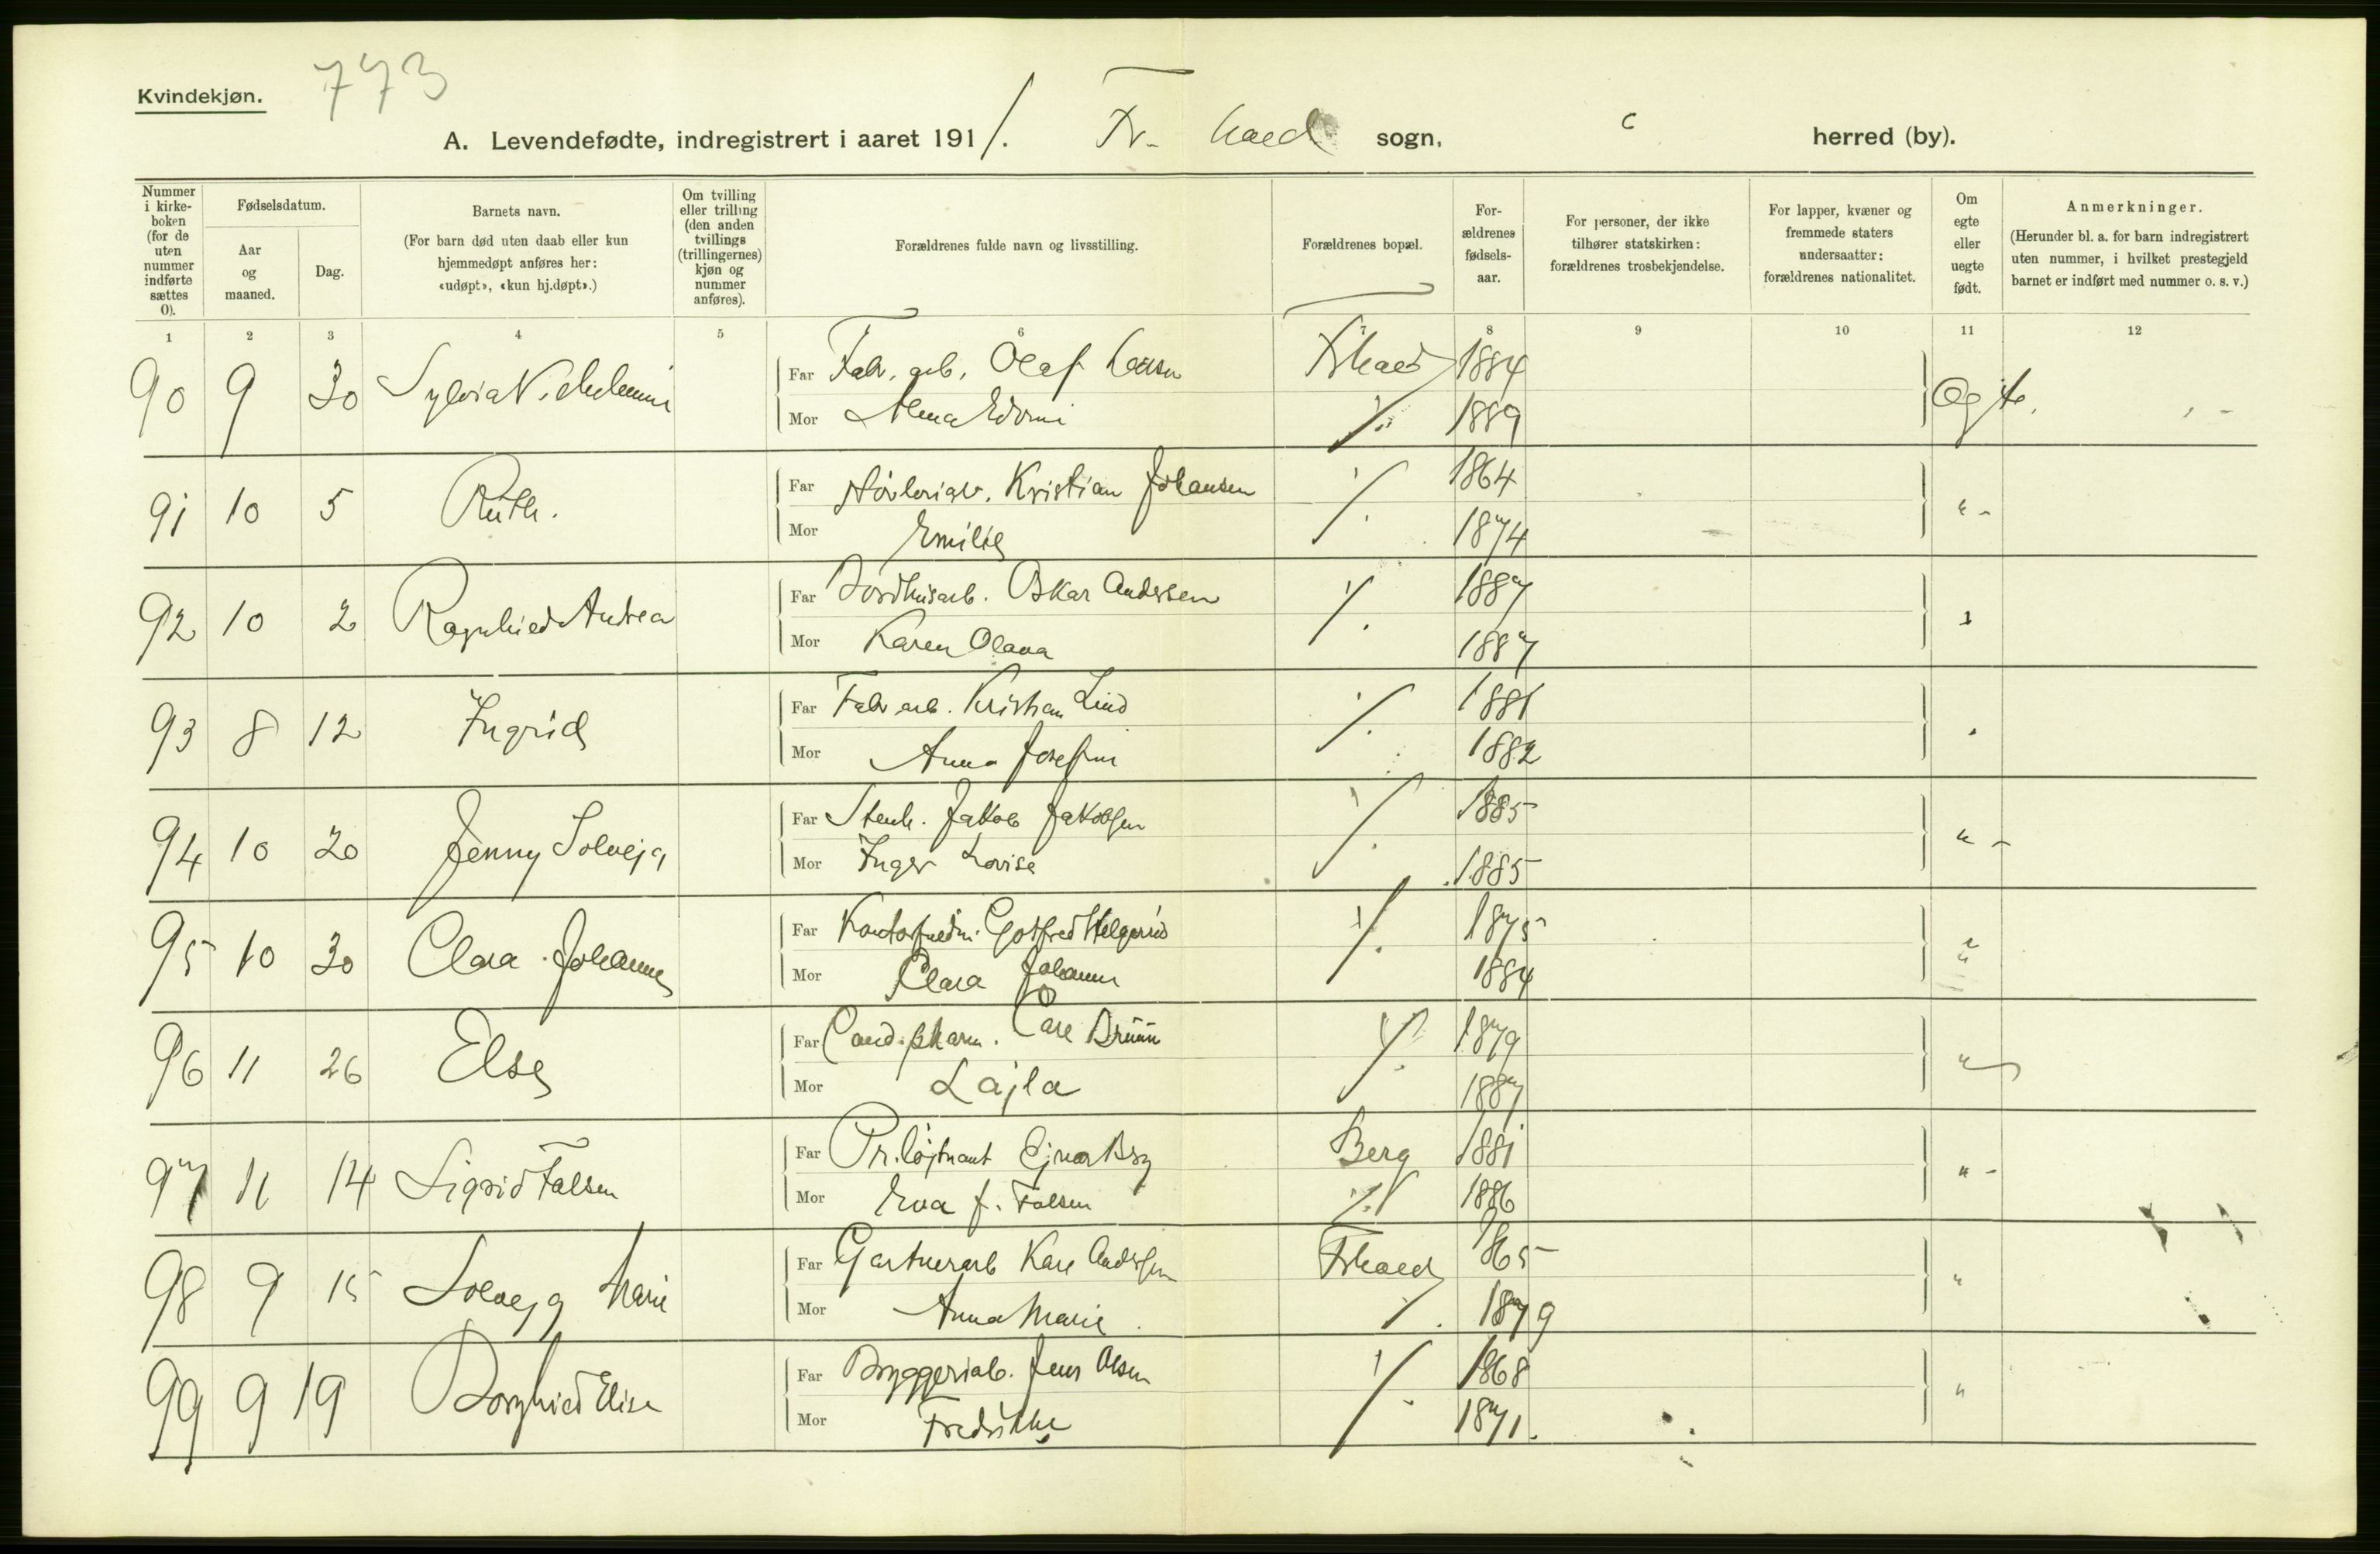 Kvindekjøn.
773
A. Levendefødte, indregistrert i aaret 1911. Fr. hald sogn, herred (by).
Nummer i kirkeboken (for de uten nummer indførte sættes 0).
Fødselsdatum.
Aar og maaned.
Dag.
Barnets navn.
(For barn død uten daab eller kun hjemmedøpt anføres her: «udøpt», «kun hj.døpt».)
Om tvilling eller trilling (den anden tvillings (trillingernes) kjøn og nummer anføres).
Forældrenes fulde navn og livsstilling.
Forældrenes bopæl.
Forældrenes fødselsaar.
For personer, der ikke tilhører statskirken: forældrenes trosbekjendelse.
For lapper, kvæner og fremmede staters undersaatter: forældrenes nationalitet.
Om egte eller uegte født.
Anmerkninger.
(Herunder bl. a. for barn indregistrert uten nummer, i hvilket prestegjeld barnet er indført med nummer o. s. v.)
1 2 3 4 5 6 7 8 9 10 11 12
90 9 30 Sylvia Vilhelmine Far Fabr. arb. Olaf Larsen Frhald 1884 Egte
Mor Alma Edvine ./. 1889
91 10 5 Ruth. Far Høvleriarb. Kristian Johansen ./. 1864 " -
Mor Emilie 1874
92 10 2 Ragnhild Andrea Far Oskar Andersen ./. 1887
Mor Karen Olava 1887
93 8 12 Ingrid Far Fabr arb. Kristian Lind ./. 1881
Mor Anna Josefine 1882
94 10 20 Jenny Solvejg Far Stenh. Jakob Jakobsen ./. 1885 " -
Mor Inger Lovise 1885
95 10 30 Clara Johanne Far Gotfred Helgerud ./. 1875 "
Mor Clara Johanne 1884
96 11 26 Else Far Cand. pharm. Carl Brünn ./. 1879 "
Mor Lajla 1887
97 11 14 Sigrid Falsen Far Pr.løjtnant Ejnar Bry Berg 1881 " -
Mor Eva J. Falsen ./. 1886
98 9 15 Solvejg Marie Far Gartnerarb Karl Andersen Frhald 1865 "
Mor Anna Marie ./. 1879
99 9 19 Borghild Elise Far Bryggeriarb. Jens Olsen ./. 1868 "
Mor Fredrikke 1871.